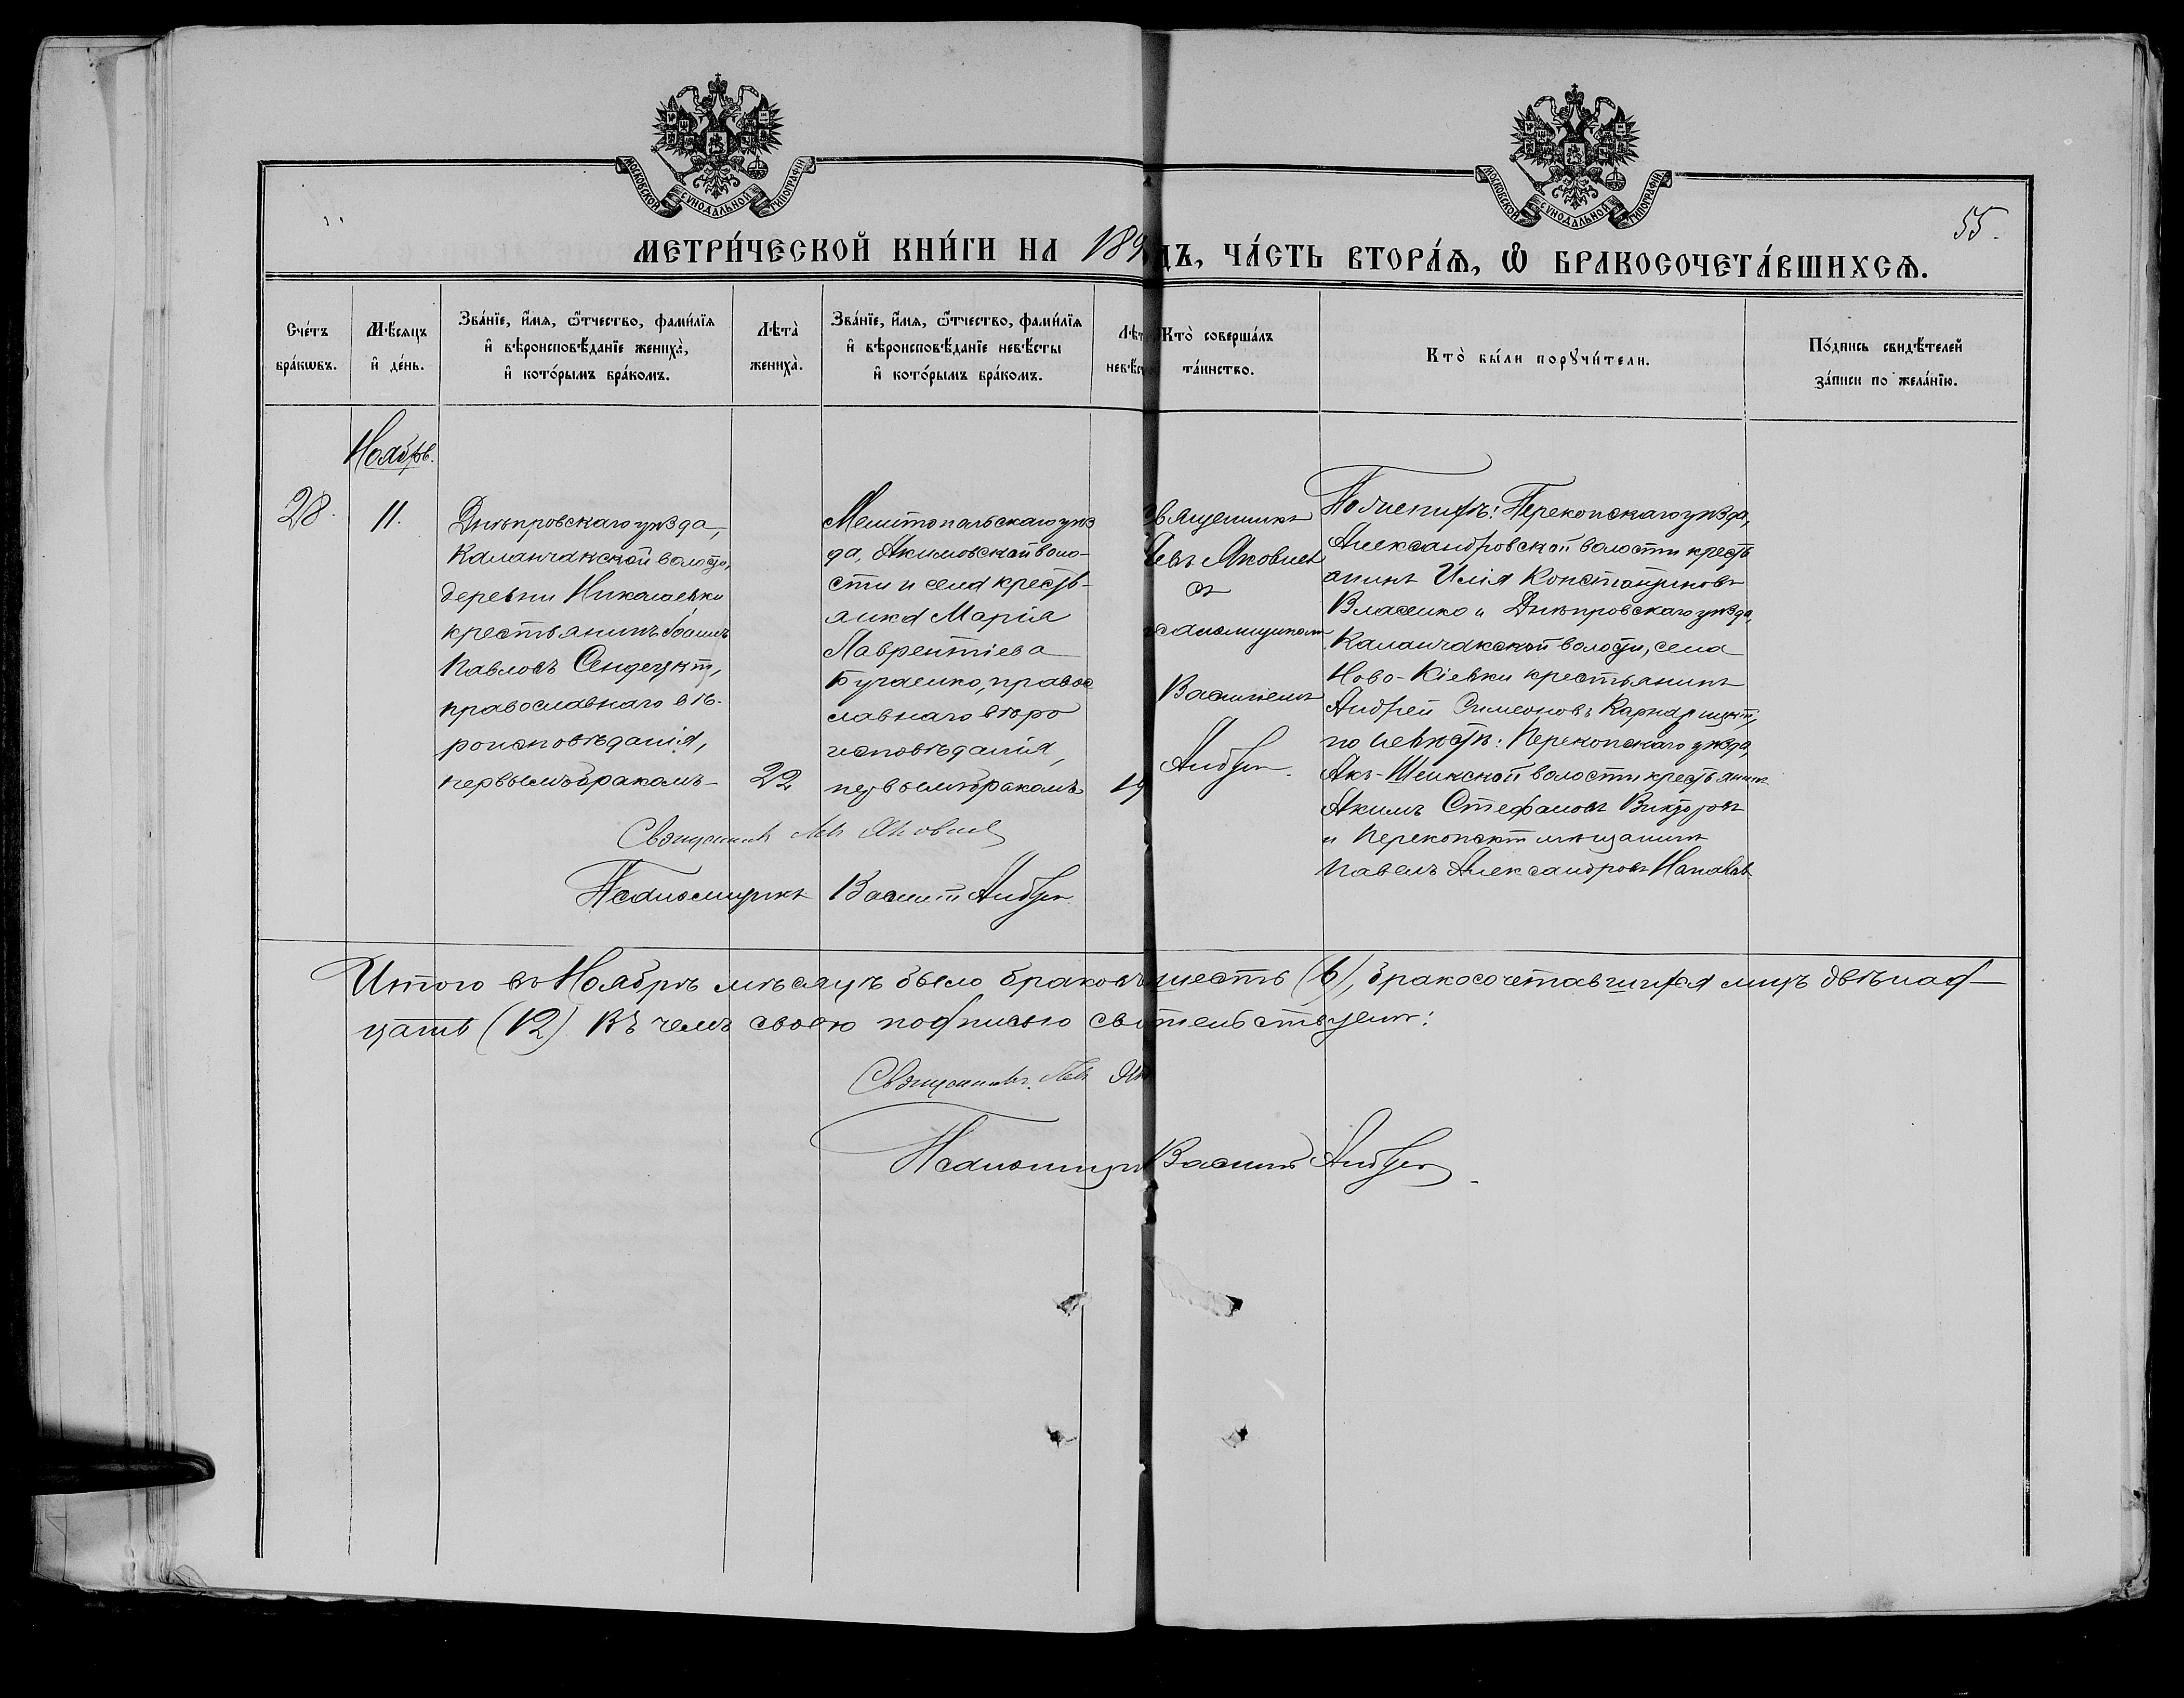 МОСКОВСКОЙ СѴНОДАЛЬНОЙ ТИПОГРАФІИ
МОСКОВСКОЙ СѴНОДАЛЬНОЙ ТИПОГРАФІИ
55.
МЕТРИ́ЧЕСКОЙ КНИ́ГИ НА 189 ДЪ, ЧА́СТЬ ВТОРА́Ѧ, Ѽ БРАКОСОЧЕТА́ВШИХСѦ.
Сче́тъ бра́кѡвъ.
Мѣ́сяцъ и҆ де́нь.
Зва́нїе, и҆́мѧ, ѻ҆́тчество, фами́лїѧ
и҆ вѣроисповѣ́данїе жениха̀,
и҆ кото́рымъ бра́комъ.
Лѣта̀
жениха̀.
Зва́нїе, и҆́мѧ, ѻ҆́тчество, фами́лїѧ
и҆ вѣроисповѣ́данїе невѣ́сты
и҆ кото́рымъ бра́комъ.
Лѣт
невѣ́с
Кто̀ соверша́лъ
та́инство.
Кто̀ бы́ли порꙋчи́тели.
По́дпись свидѣ́телей
за́писи по жела́нїю.
Ноябрь.
28.
11.
Днѣпровскаго уѣзда,
Каланчакской волости,
деревни Николаевки
крестьянинъ Іоаннъ
Павловъ Сендецкій,
православнаго вѣ-
роисповѣданія,
первымъ бракомъ
22
Мелитопольскаго уѣз
да, Акимовской воло-
сти и села кресть-
янка Марія
Лаврентіева
Бугаенко, правос
славнаго вѣро
исповѣданія,
первымъ бракомъ
19
Священникъ
Левъ Яковлев
съ
псаломщикомъ
Василіемъ
По женихѣ: Перекопскаго уѣзда,
Александровской волости кресть
янинъ Илія Константиновъ
Власенко и Днѣпровскаго уѣзда,
Каланчакской волости, села
Ново-Кіевки крестьянинъ
Андрей Симеоновъ
по невѣстѣ: Перекопскаго уѣзда,
Акъ-Шеикской волости крестьянинъ
Акимъ Стефановъ Викторовъ
и Перекопскій мѣщанинъ
Павелъ Александровъ
Священникъ Левъ Яковлев
Псаломщикъ Василій
Итого въ Ноябрѣ мѣсяцѣ было браковъ шесть (6), бракосочетавшихся лицъ двѣнад-
цать (12). Въ чемъ своею подписью свидѣтельствуемъ:
Священникъ Левъ Як
Псаломщикъ Василій